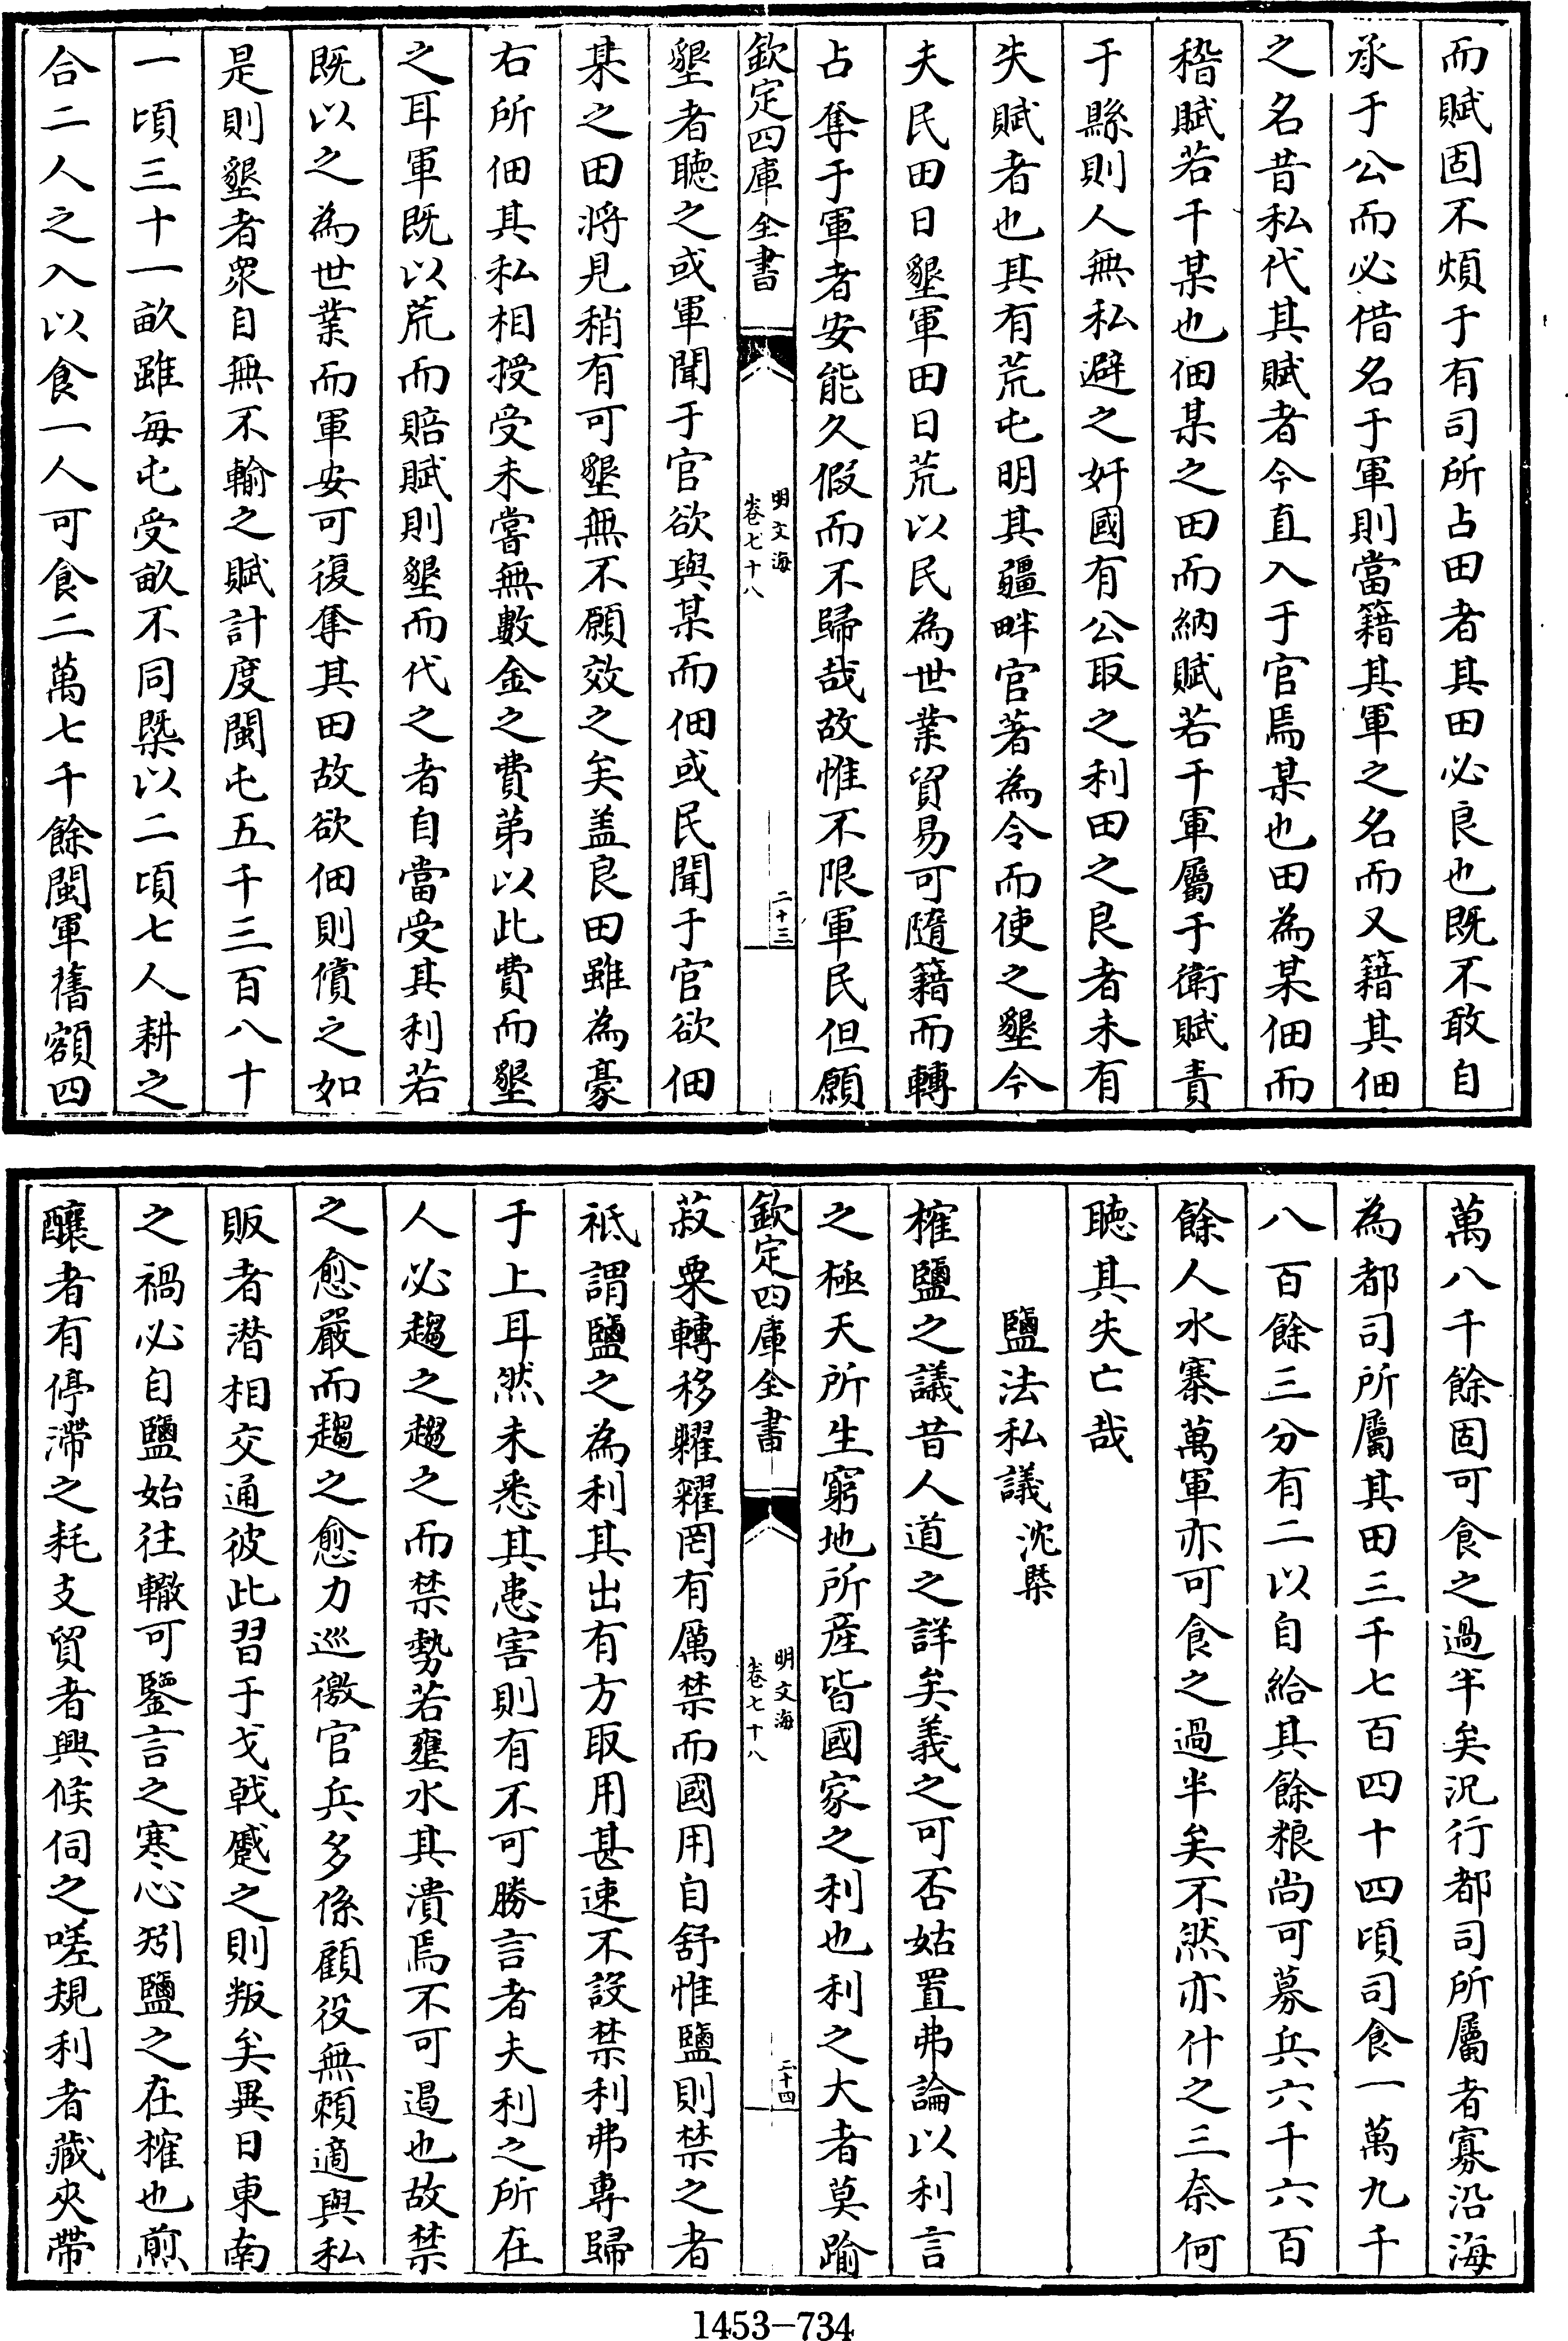 而賦固不煩于有司所占田者其田必良也既不敢自
承于公而必借名于軍則當籍其軍之名而又籍其佃
之名昔私代其賦者今直入于官焉某也田為某佃而
稽賦若干某也佃某之田而納賦若干軍屬于衛賦責
于縣則人無私避之奸國有公取之利田之良者未有
失賦者也其有荒屯明其疆畔官著為令而使之墾今
夫民田日墾軍田日荒以民為世業貿易可隨籍而轉
占奪于軍者安能久假而不歸哉故惟不限軍民但願
欽定四庫全書
明文海
卷七十八
二十三
墾者聽之或軍聞于官欲與某而佃或民聞于官欲佃
某之田将見稍有可墾無不願效之矣盖良田雖為豪
右所佃其私相授受未嘗無數金之費第以此費而墾
之耳軍既以荒而賠賦則墾而代之者自當受其利若
既以之為世業而軍安可復奪其田故欲佃則償之如
是則墾者衆自無不輸之賦計度閩屯五千三百八十
一頃三十一畝雖每屯受畝不同槩以二頃七人耕之
合二人之入以食一人可食二萬七千餘閩軍舊額四
萬八千餘固可食之過半矣況行都司所屬者寡沿海
為都司所屬其田三千七百四十四頃司食一萬九千
八百餘三分有二以自給其餘粮尚可募兵六千六百
餘人水寨萬軍亦可食之過半矣不然亦什之三奈何
聽其失亡哉
鹽法私議 沈棨
榷鹽之議昔人道之詳矣義之可否姑置弗論以利言
之極天所生窮地所産皆國家之利也利之大者莫踰
欽定四庫全書
明文海
卷七十八
二十四
菽粟轉移糶糴罔有厲禁而國用自舒惟鹽則禁之者
祗謂鹽之為利其出有方取用甚速不設禁利弗專歸
于上耳然未悉其患害則有不可勝言者夫利之所在
人必趨之趨之而禁勢若壅水其潰焉不可遏也故禁
之愈嚴而趨之愈力巡徼官兵多係顧役無賴適與私
販者潜相交通彼此習于戈戟蹙之則叛矣異日東南
之禍必自鹽始往轍可鑒言之寒心矧鹽之在榷也煎
釀者有停滯之耗支貿者興候伺之嗟規利者藏夾帶
1453-734